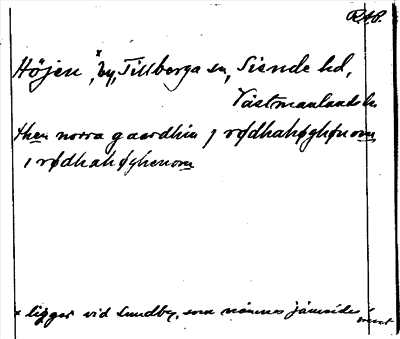 RAP.
Höjen, ˣ by, Tillberga sn, Siende hd,
Västmanlands l.
then norra gaardhin j rødhahøghønom
i rødhahøghenom
× ligger vid Lundby, som nämnes jämsides